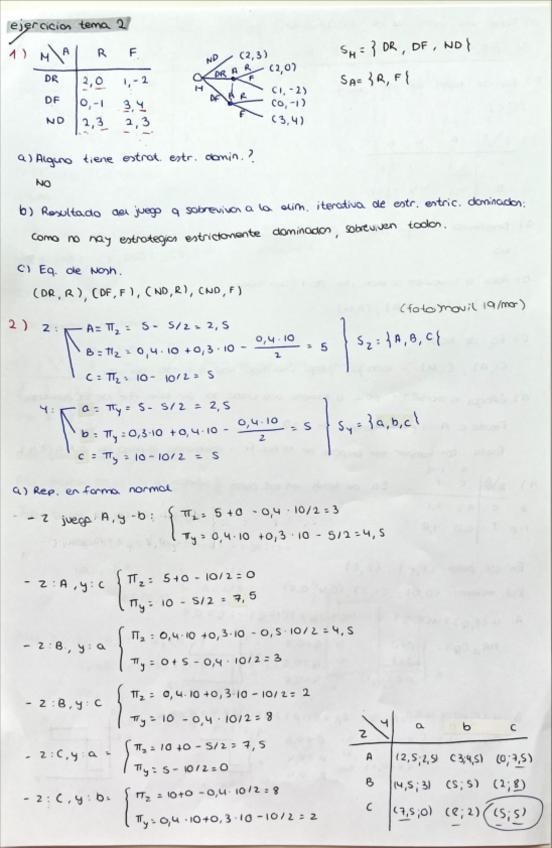 ejercicios tema 2
1) M \ A R F
DR 2,0 1,-2
DF 0,-1 3,4
ND 2,3 2,3
ND (2,3)
DR A R (2,0)
M F
DF A R (1,-2)
(0,-1)
F
(3,4)
S_M = { DR, DF, ND }
S_A = { R, F }
a) Alguno tiene estrat. estr. domin.?
NO
b) Resultado del juego q sobreviva a la elim. iterativa de estr. estric. dominadas:
como no hay estrategias estrictamente dominadas, sobreviven todas.
c) Eq. de Nash.
(DR, R), (DF, F), (ND, R), (ND, F)
(foto movil 19/mar)
2) Z: A = π_Z = 5 - 5/2 = 2,5
B = π_Z = 0,4·10 + 0,3·10 - 0,4·10/2 = 5
C = π_Z = 10 - 10/2 = 5
S_Z = {A, B, C}
Y: a = π_Y = 5 - 5/2 = 2,5
b = π_Y = 0,3·10 + 0,4·10 - 0,4·10/2 = 5
c = π_Y = 10 - 10/2 = 5
S_Y = {a, b, c}
a) Rep. en forma normal
- Z juega A, y - b: { π_Z = 5 + 0 - 0,4·10/2 = 3
π_Y = 0,4·10 + 0,3·10 - 5/2 = 4,5
- Z: A, y: c { π_Z = 5 + 0 - 10/2 = 0
π_Y = 10 - 5/2 = 7,5
- Z: B, y: a { π_Z = 0,4·10 + 0,3·10 - 0,5·10/2 = 4,5
π_Y = 0 + 5 - 0,4·10/2 = 3
- Z: B, y: c { π_Z = 0,4·10 + 0,3·10 - 10/2 = 2
π_Y = 10 - 0,4·10/2 = 8
- Z: C, y: a = { π_Z = 10 + 0 - 5/2 = 7,5
π_Y = 5 - 10/2 = 0
- Z: C, y: b = { π_Z = 10 + 0 - 0,4·10/2 = 8
π_Y = 0,4·10 + 0,3·10 - 10/2 = 2
Z \ Y a b c
A (2,5; 2,5) (3;4,5) (0;7,5)
B (4,5; 3) (5; 5) (2; 8)
C (7,5; 0) (8; 2) (5; 5)